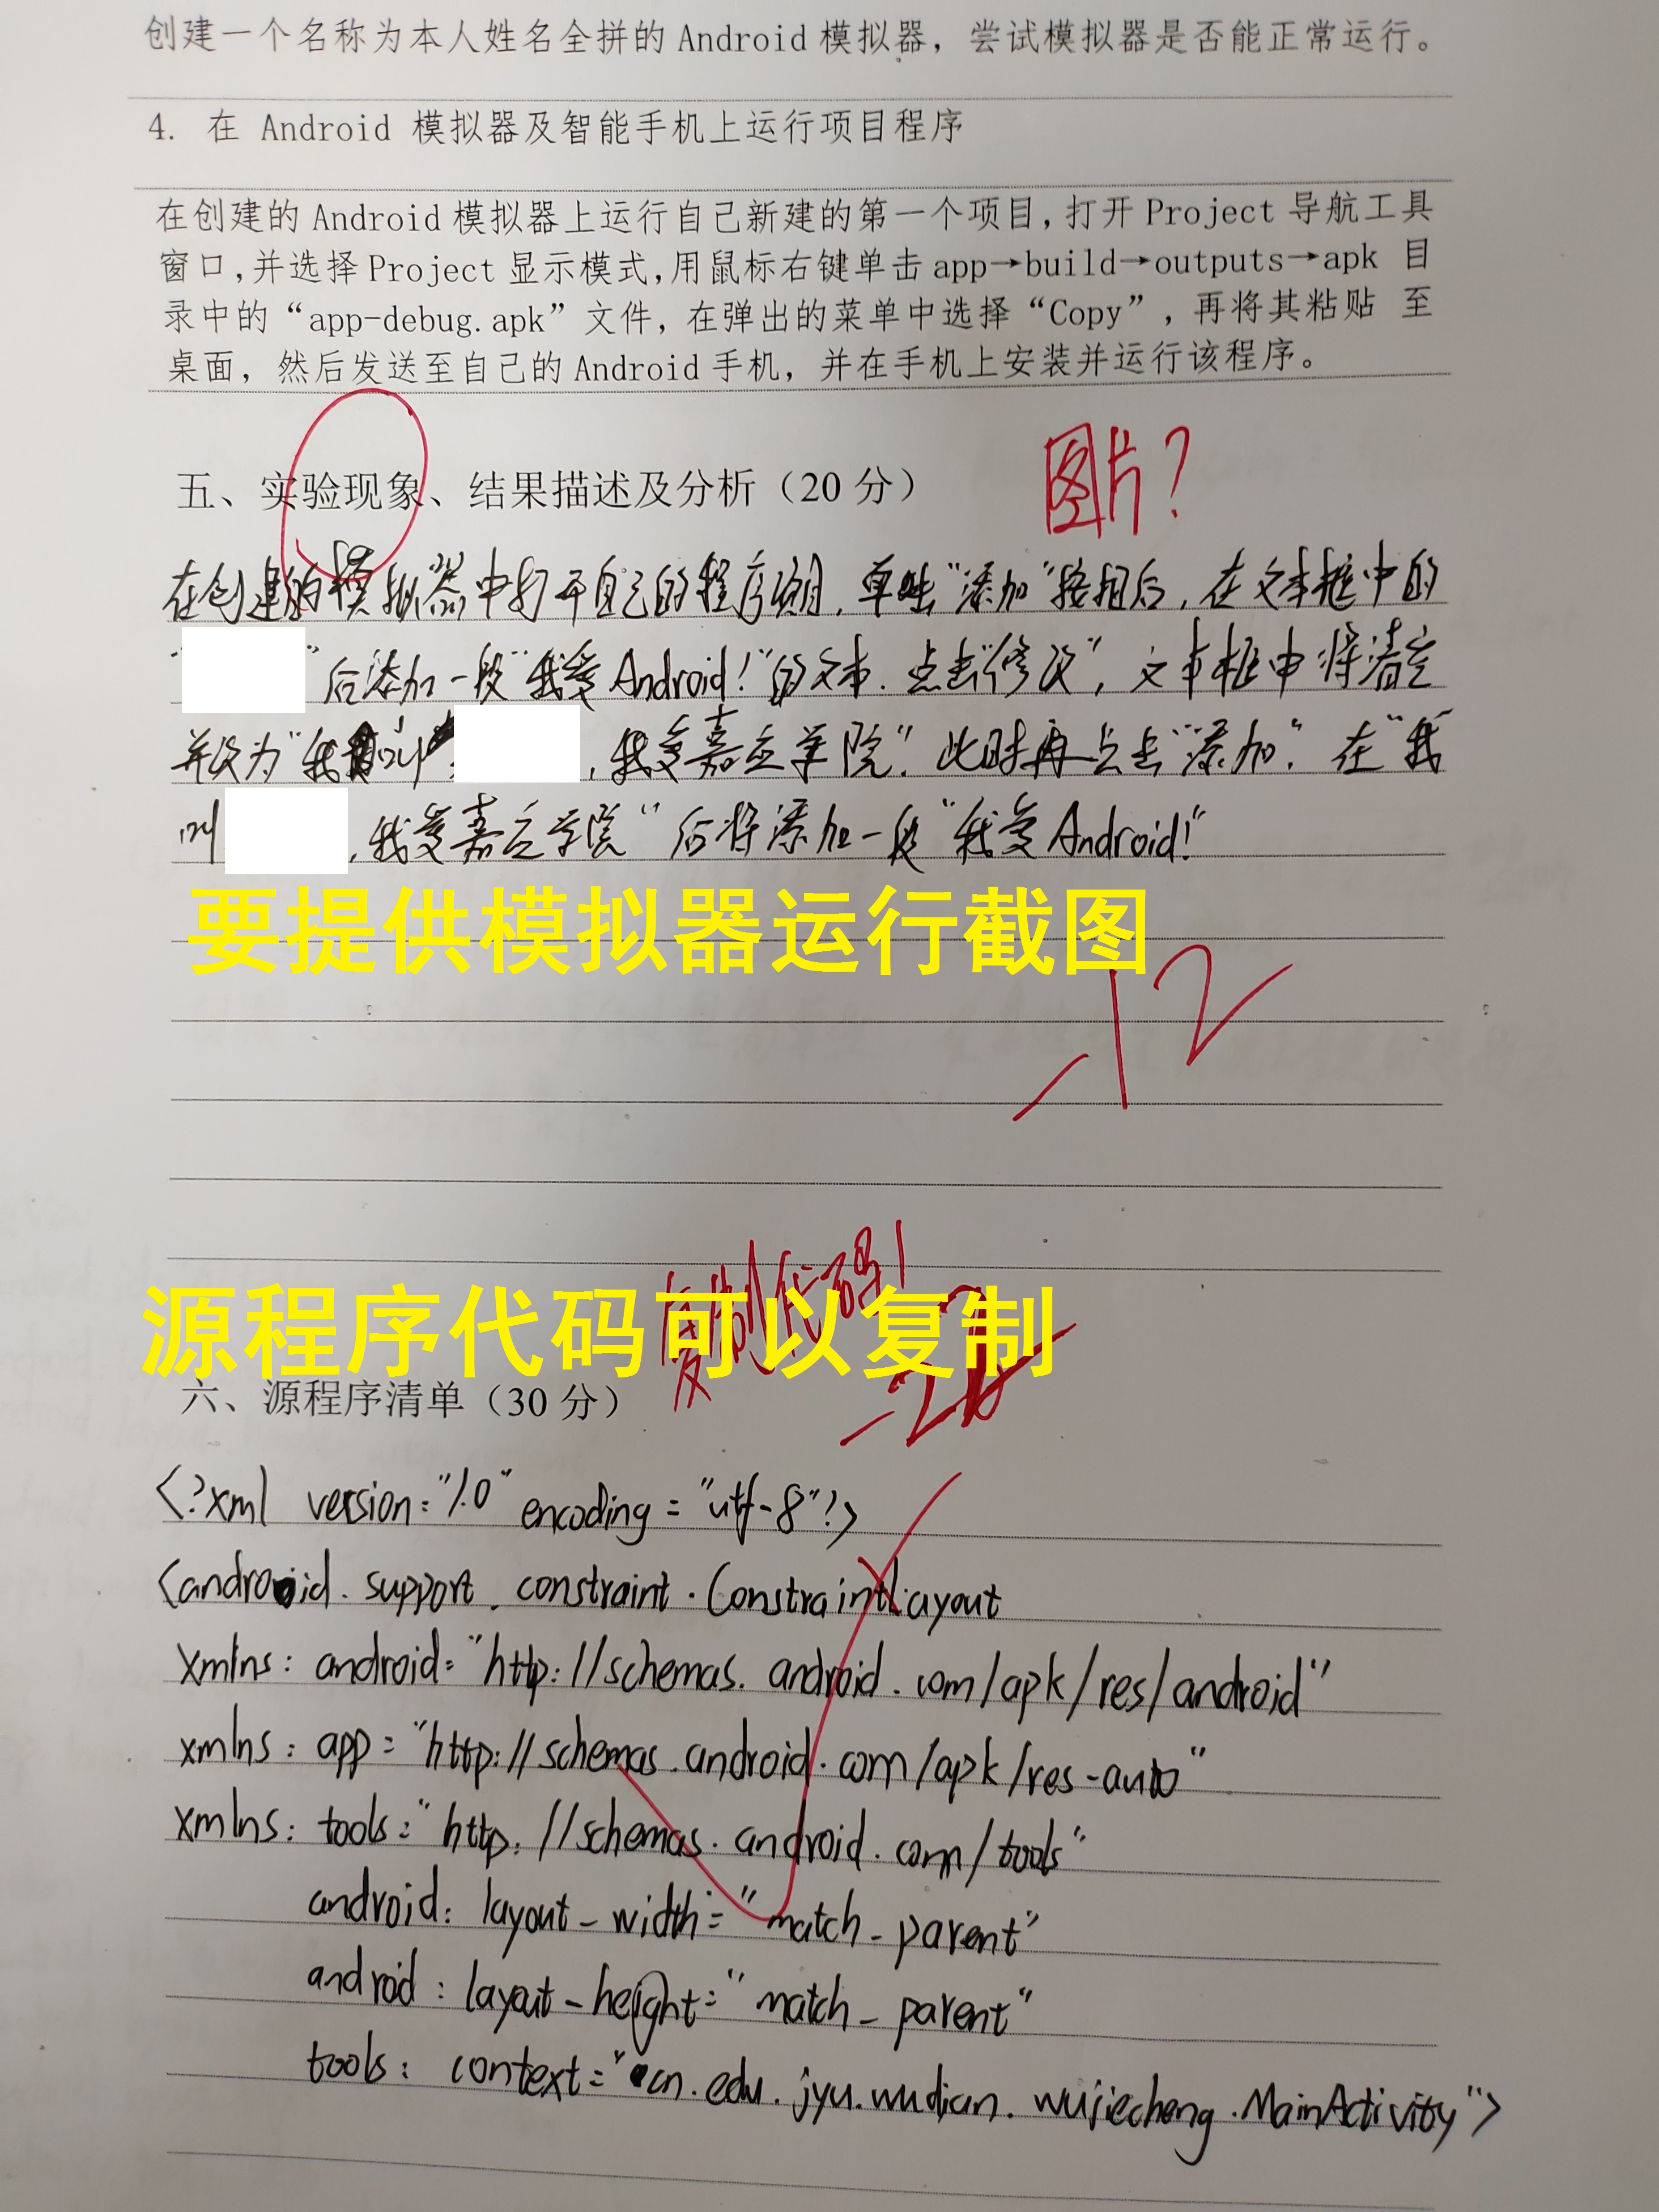 创建一个名称为本人姓名全拼的 Android 模拟器，尝试模拟器是否能正常运行。
4. 在 Android 模拟器及智能手机上运行项目程序
在创建的 Android 模拟器上运行自己新建的第一个项目，打开 Project 导航工具
窗口，并选择 Project 显示模式，用鼠标右键单击 app→build→outputs→apk 目
录中的“app-debug.apk”文件，在弹出的菜单中选择“Copy”，再将其粘贴 至
桌面，然后发送至自己的 Android 手机，并在手机上安装并运行该程序。
五、实验现象、结果描述及分析（20 分）
图片？
在创建的模拟器中打开自己的程序项目，单击“添加”按钮后，在文本框中的
“ ”后添加一段“我爱 Android！”的文本．点击“修改”，文本框中将清空
并设为“我叫 ，我爱嘉应学院”．此时再点击“添加”．在“我
叫 ，我爱嘉应学院”后将添加一段“我爱 Android！”
要提供模拟器运行截图
-12
复制代码！
源程序代码可以复制
六、源程序清单（30 分）
<?xml version="1.0" encoding="utf-8"?>
<android.support.constraint.ConstraintLayout
xmlns:android="http://schemas.android.com/apk/res/android"
xmlns:app="http://schemas.android.com/apk/res-auto"
xmlns:tools="http://schemas.android.com/tools"
android:layout_width="match_parent"
android:layout_height="match_parent"
tools:context="cn.edu.jyu.wudian.wujiecheng.MainActivity">